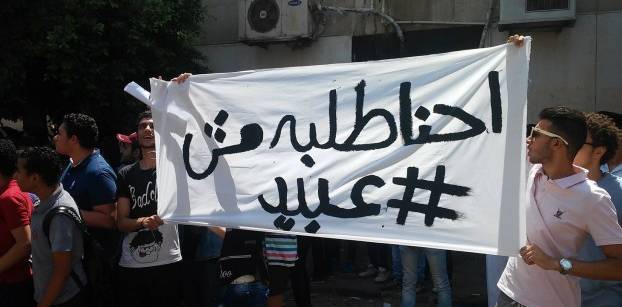 احنا طلبه مش
#عبيد
Badch